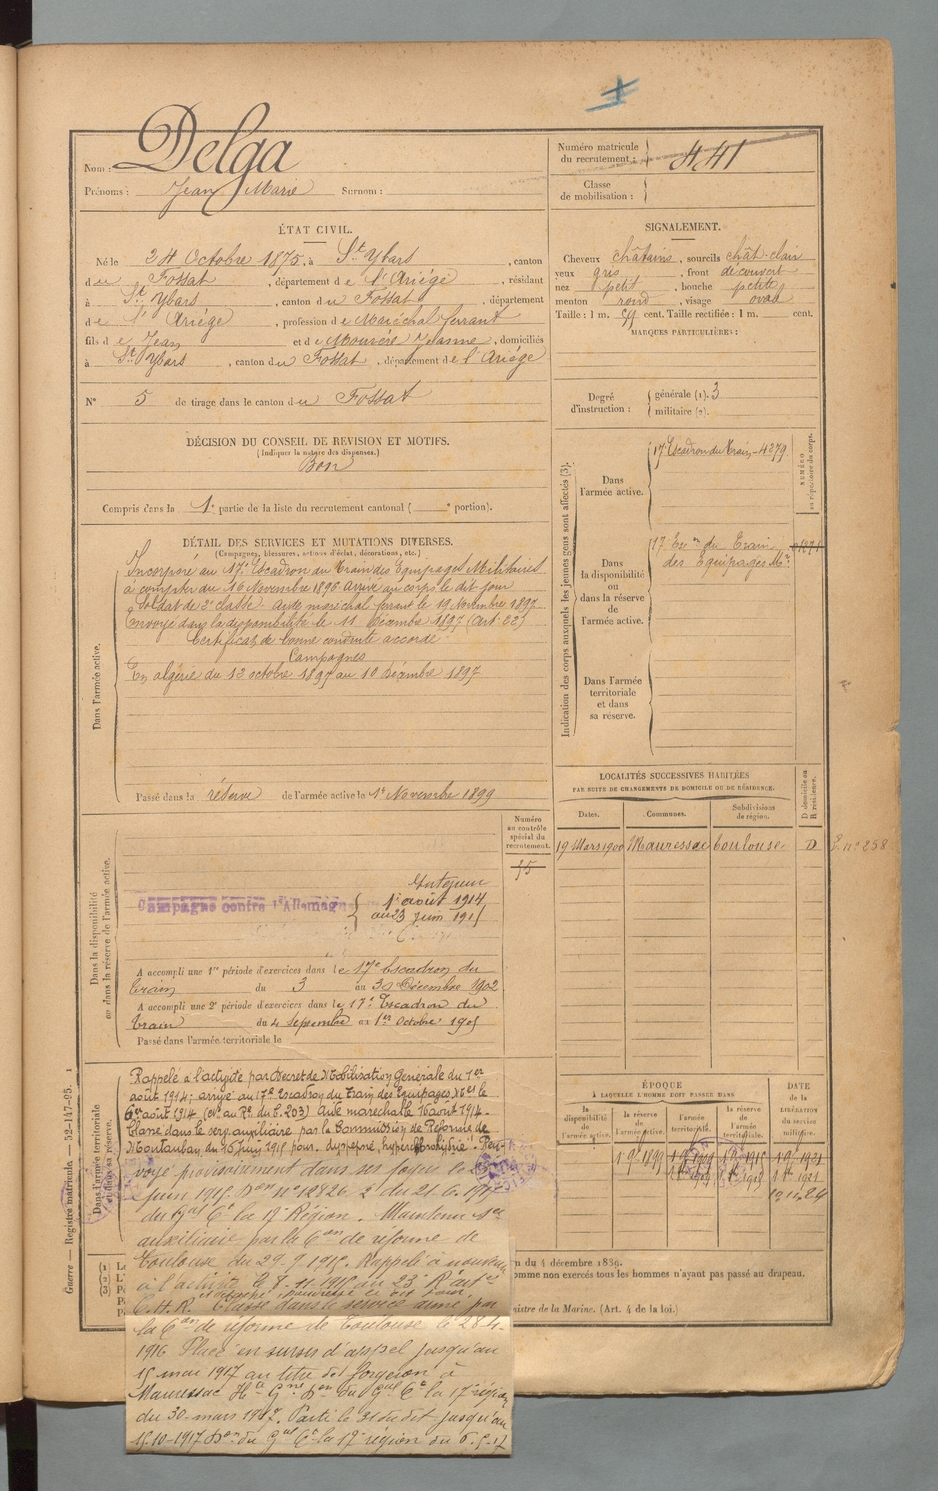 Nom : Delga
Prénoms : Jean Marie Surnom :
Numéro matricule
du recrutement : 441
Classe
de mobilisation :
ÉTAT CIVIL.
Né le 24 Octobre 1875, à St Ybars, canton
du Fossat, département de l'Ariége, résidant
à St Ybars, canton du Fossat, département
de l'Ariége, profession de Maréchal ferrant
fils de Jean et de Jeanne, domiciliés
à St Ybars, canton du Fossat, département de l'Ariége
N° 5 de tirage dans le canton du Fossat
SIGNALEMENT.
Cheveux châtains, sourcils chât-clair
yeux gris, front découvert
nez petit, bouche petite
menton rond, visage ovale
Taille : 1 m. cent. Taille rectifiée : 1 m. cent.
MARQUES PARTICULIÈRES :
Degré
d'instruction :
générale (1). 3
militaire (2).
DÉCISION DU CONSEIL DE REVISION ET MOTIFS.
(Indiquez la nature des dispenses.)
Bon
Compris dans la 1e partie de la liste du recrutement cantonal ( e portion).
DÉTAIL DES SERVICES ET MUTATIONS DIVERSES.
(Campagnes, blessures, actions d'éclat, décorations, etc.)
Dans l'armée active.
Incorporé au 17e Escadron du Train des Equipages Militaires
à compter du 16 Novembre 1896 arrivé au corps le dit jour
Soldat de 2e classe. Aide maréchal ferrant le 19 Novembre 1897
Envoyé dans la disponibilité le 11 Décembre 1897 (Art. 22)
Certificat de bonne conduite accordé
Campagnes
En algérie du 12 octobre au 10 Décembre 1897
Passé dans la réserve de l'armée active le 1er Novembre 1899
Indication des corps auxquels les jeunes gens sont affectés (3).
NUMÉRO
au répertoire du corps.
Dans
l'armée active.
17e Escadron du Train - 4279
Dans
la disponibilité
ou
dans la réserve
de
l'armée active.
17 Eson du Train
des Equipages Mres
Dans l'armée
territoriale
et dans
sa réserve.
LOCALITÉS SUCCESSIVES HABITÉES
PAR SUITE DE CHANGEMENTS DE DOMICILE OU DE RÉSIDENCE.
D domicile ou
R résidence.
Dates. Communes. Subdivisions
de région.
19 Mars 1900 Mauressac Toulouse D
Numéro
au contrôle
spécial du
recrutement.
Dans la disponibilité
ou dans la réserve de l'armée active.
Campagne contre l'Allemagne
Intérieur
1er août 1914
au 23 juin 1915
A accompli une 1re période d'exercices dans le 17e Escadron du
Train du 3 au 30 Décembre 1902
A accompli une 2e période d'exercices dans le 17e Escadron du
Train du 4 Septembre au 1er Octobre 1905
Passé dans l'armée territoriale le
Dans l'armée territoriale
et dans sa réserve.
Rappelé à l'activité par Décret de Mobilisation Générale du 1er
août 1914; arrivé au 17e Escadron du Train des Equipages Mres le
août 1914. Aide maréchal le 16 août 1914.
Classé dans le serv. auxiliaire par la Commission de Réforme de
Montauban du 16 juin 1915 pour. Ren-
voyé provisoirement dans ses foyers le
juin 1915. Don n° 12826. 2 du 21. 6. 1915
du Gal Ct la 17e Région. Maintenu Sce
auxiliaire par la Con de réforme de
Toulouse du 29. 9. 1915. Rappelé à nouveau
à l'activité le 8. 11. 1915 au 23e R. d'art.
C. H. R. Classé dans le service armé par
la Con de réforme de Toulouse le 28.4.
1916 Placé en sursis d'appel jusqu'au
15 mai 1917 au titre de forgeron à
Mauressac Hte Gne Don du Gal Ct la 17e région
du 30 mars 1917. Parti le 31 du dit jusqu'au
15-10-1917 Don du Gal Ct la 17e région du
ÉPOQUE
À LAQUELLE L'HOMME DOIT PASSER DANS
la
disponibilité
de
l'armée active.
la réserve
de
l'armée active.
l'armée
territoriale.
la réserve
de
l'armée
territoriale.
DATE
de la
LIBÉRATION
du service
militaire.
Guerre — Registre matricule. — 52-147-95. 1
(1)
(2)
(3)
n du 4 décembre 1889.
omme non exercés tous les hommes n'ayant pas passé au drapeau.
nistre de la Marine. (Art. 4 de la loi.)